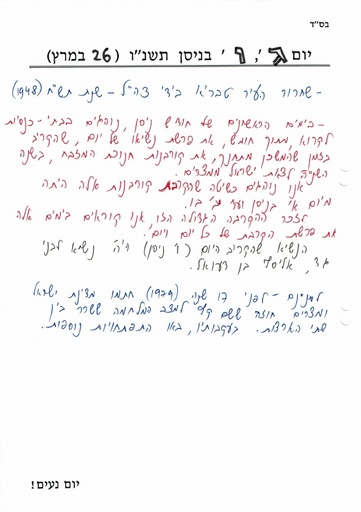 בס"ד
יום ג', ו' בניסן תשנ"ו (26 במרץ)
- שחרור העיר טבריא בידי צה"ל - שנת תש"ח (1948)
- בימים הראשונים של חודש ניסן, נוהגים בבתי-כנסיות
לקרוא, מתוך חומש, את פרשת נשיאו של יום, שהקריב
בזמן שהמשכן מתחנך, את קורבנות חנוכת המזבח, בשנה
השניה לצאת ישראל ממצרים.
אנו נוהגים כשיטה שהקרבת קורבנות אלה היתה
מיום א' בניסן ועד י"ב בו.
לזכר ההקרבה הגדולה הזו, אנו קוראים בימים אלה
את פרשת הקרבת של כל יום ויום.
הנשיא שהקריב היום (ו' ניסן) היה נשיא לבני
גד, אליסף בן דעואל.
לפני 17 שנה (1979) חתמו מדינת ישראל
ומצרים חוזה ששם קץ למצב המלחמה ששרר בין
שתי הארצות. בעקבותיו, באו התפתחויות נוספות.
יום נעים!